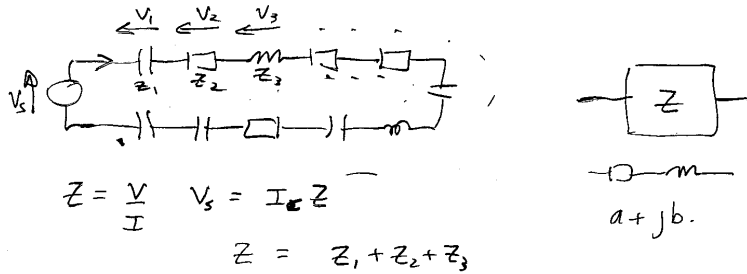 V₁ V₂ V₃
Z₁ Z₂ Z₃
Vs
Z
Z = V/I Vs = I Z
a + jb.
Z = Z₁ + Z₂ + Z₃